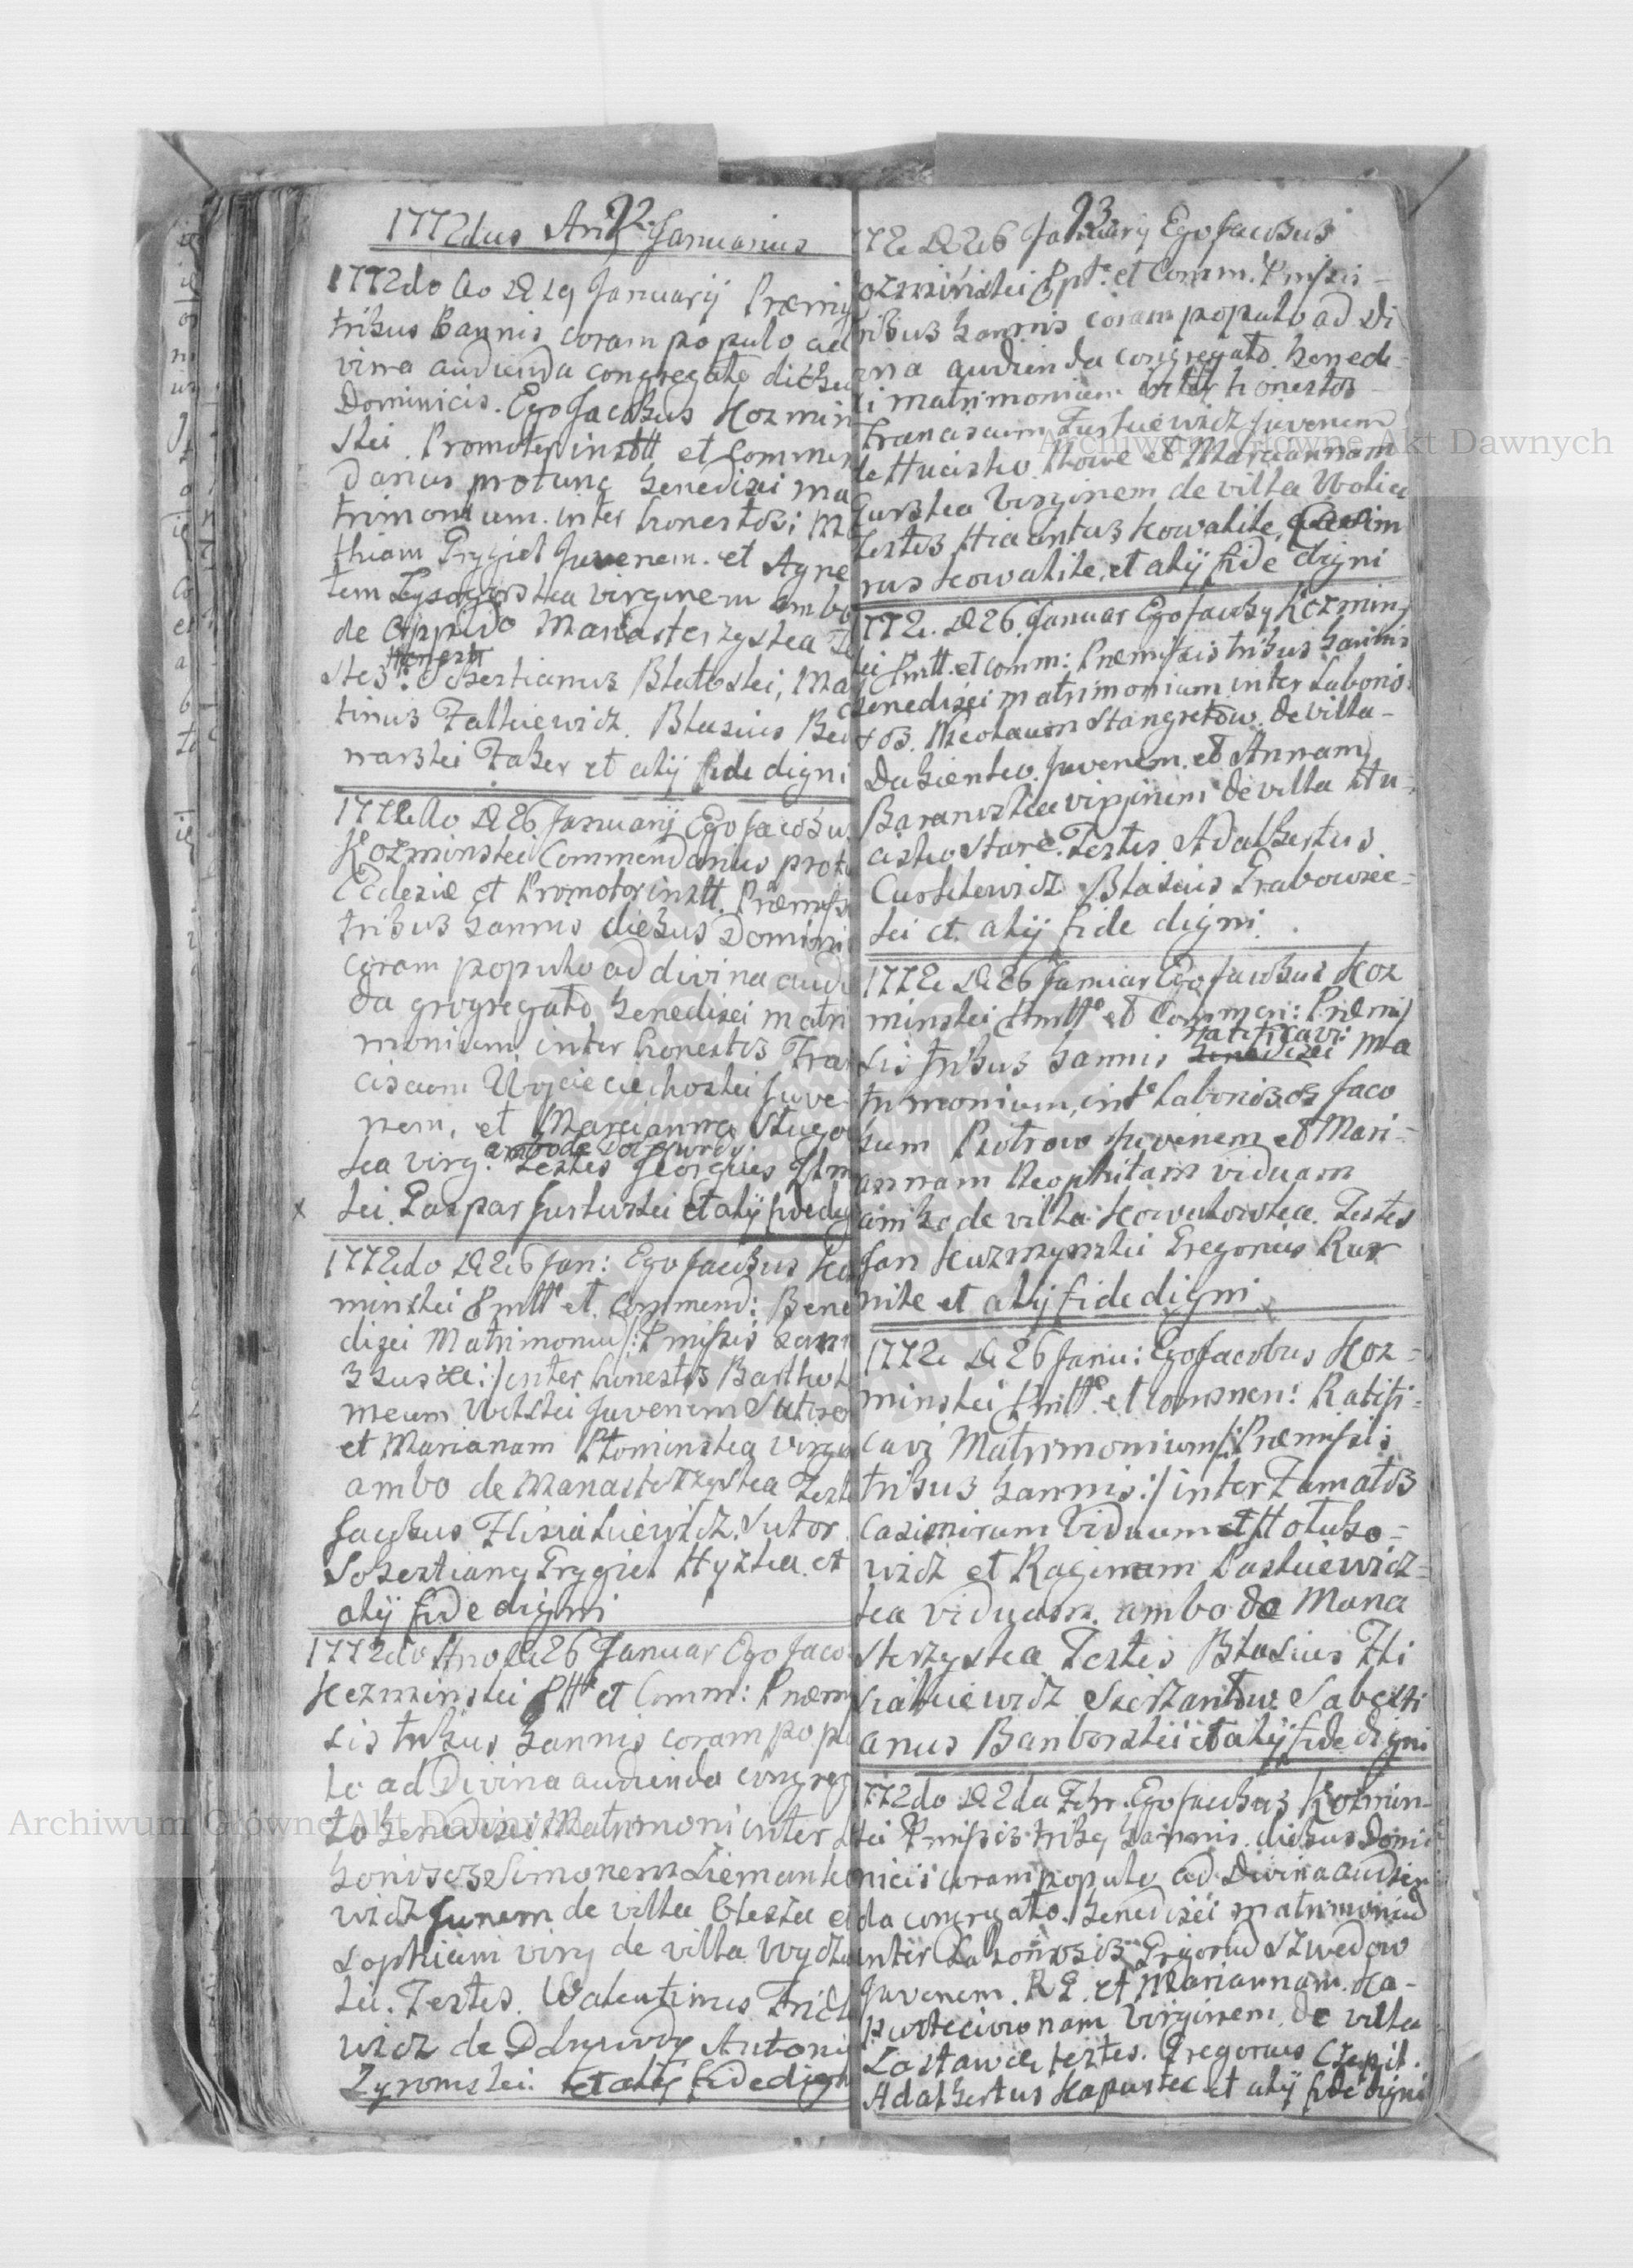 22
1772dus Anus Januarius
1772do Ao D 19 Januarij Præmiss
tribus Bannis coram populo ad
vina audienda congregato diebu
Dominicis. Ego Jacobus Kozmin
skei Promotor instt et Commen
darius protunc benedixi ma
trimonium. inter honestos: Ma
thiam Grygiel Juvenem. et Agne
tem Lysogorska virginem ambo
de Oppido Manasterzyska Te
stes Honest: Sobestianus Blatoskei, Mar
tinus Falkiewicz. Blasius Bed
narskei Faber et alij fide digni
1772 Ao D 26 Januarij Ego Jacobu
Kozminskei Commendarius protu
Ecclesiæ et Promotor instt. Præmiss
tribus bannis diebus Domini
coram populo ad divina audi
da grogregato benedixi matri
monium inter honestos Fran
ciscum Woyciechoskei Juve
nem, et Mariannam Stugo
ka virg. ambo de Dobrywody Testes Georgius
x kei. Gaspar Justuskei et alij fide dig
1772do D 26 Jan: Ego Jacobus Koz
minskei Pmtt et Commend: Bene
dixi Matrimoniu /: Pmissis bann
3bus :/ inter honestos Bartholo
meum Witskei Juvenem Sutore
et Marianam Ptominska Virgin
ambo de Manasterzyska Teste
Jacobus Flisiakiewicz. Sutor
Sobestiany Grygiel Hyzka. et
alij fide digni
1772do Ano D 26 Januar Ego Jaco
Kozminskei Ptt et Comm: Præmis
sis tribus bannis coram popu
lo ad Divina audienda congrega
to benedixi Matrimoni inter La
boriosos Simonem Ziemanko
wicz Junem de villa Olesza et
Sophiam virg de villa Wyczu
kei. Testes. Walentinus Fridk
wicz de Dobrywody Antoni
Zyromskei. et alij fide digni
23
72 D 26 Januarij Ego Jacobus
ozminskei Ppt. et Comm. Pmissis
ribus bannis coram populo ad Di
ina audienda congregato. benedi
i matrimonium inter honestos
Franciscum Juskiewicz Juvenem
de Hucisko Nowe et Mariannam
Gurska Virginem de villa Wolica
testes Hiacintus Kowalik, Casim
rus Kowalik, et alij fide digni
772. D 26. Januar Ego Jacoby Kozmins
kei Pmtt. et comm: Præmissis tribus bannis
benedixi matrimonium inter Laborio
sos. Nicolaum Stangretow de villa
Dubienko Juvenem. et Annam
Baranska virginem de villa Hu
cisko Stare. Testes Adalbertus
Curkilewicz Blasius Grabowiec
kei et alij fide digni.
1772 D 26 Januar Ego Jacobus Koz
minskei Pmtt et Commen: Præmis
sis tribus bannis ratificavi: ma
trimonium, int Laboriosos Jaco
bum Piotrow Juvenem et Mari
annam Neophitam viduam
ambo de villa Kowalowka. Testes
Jan Kuzmynskei Gregorius Rus
nik et alij fide digni
1772 D 26 Janu: Ego Jacobus Koz
minskei Pmtt et Commen: Ratifi
cavi Matrimonium /: Præmissis
tribus bannis :/ inter Famatos
Casimirum Viduum Hotubo
wicz et Raginam Paskiewicz
ka viduam. ambo de Mana
sterzyska Testes Blasius Fli
siakiewicz Sierzantow Sabesti
anus Banborskei et alij fide digni
772do D 2da Febr. Ego Jacobus Kozmin
kei Pmissis tribq bannis. diebus Domi
nicis coram populo ad Divina audien
da congregato. benedixei matrimoniu
inter Laboriosos Grigoriu Szwedow
Juvenem. R G. et Mariannam Ka
pustecionam Virginem. de villa
Lostawce testes. Gregorius Czepil.
Adalbertus Kapustec et alij fide digni